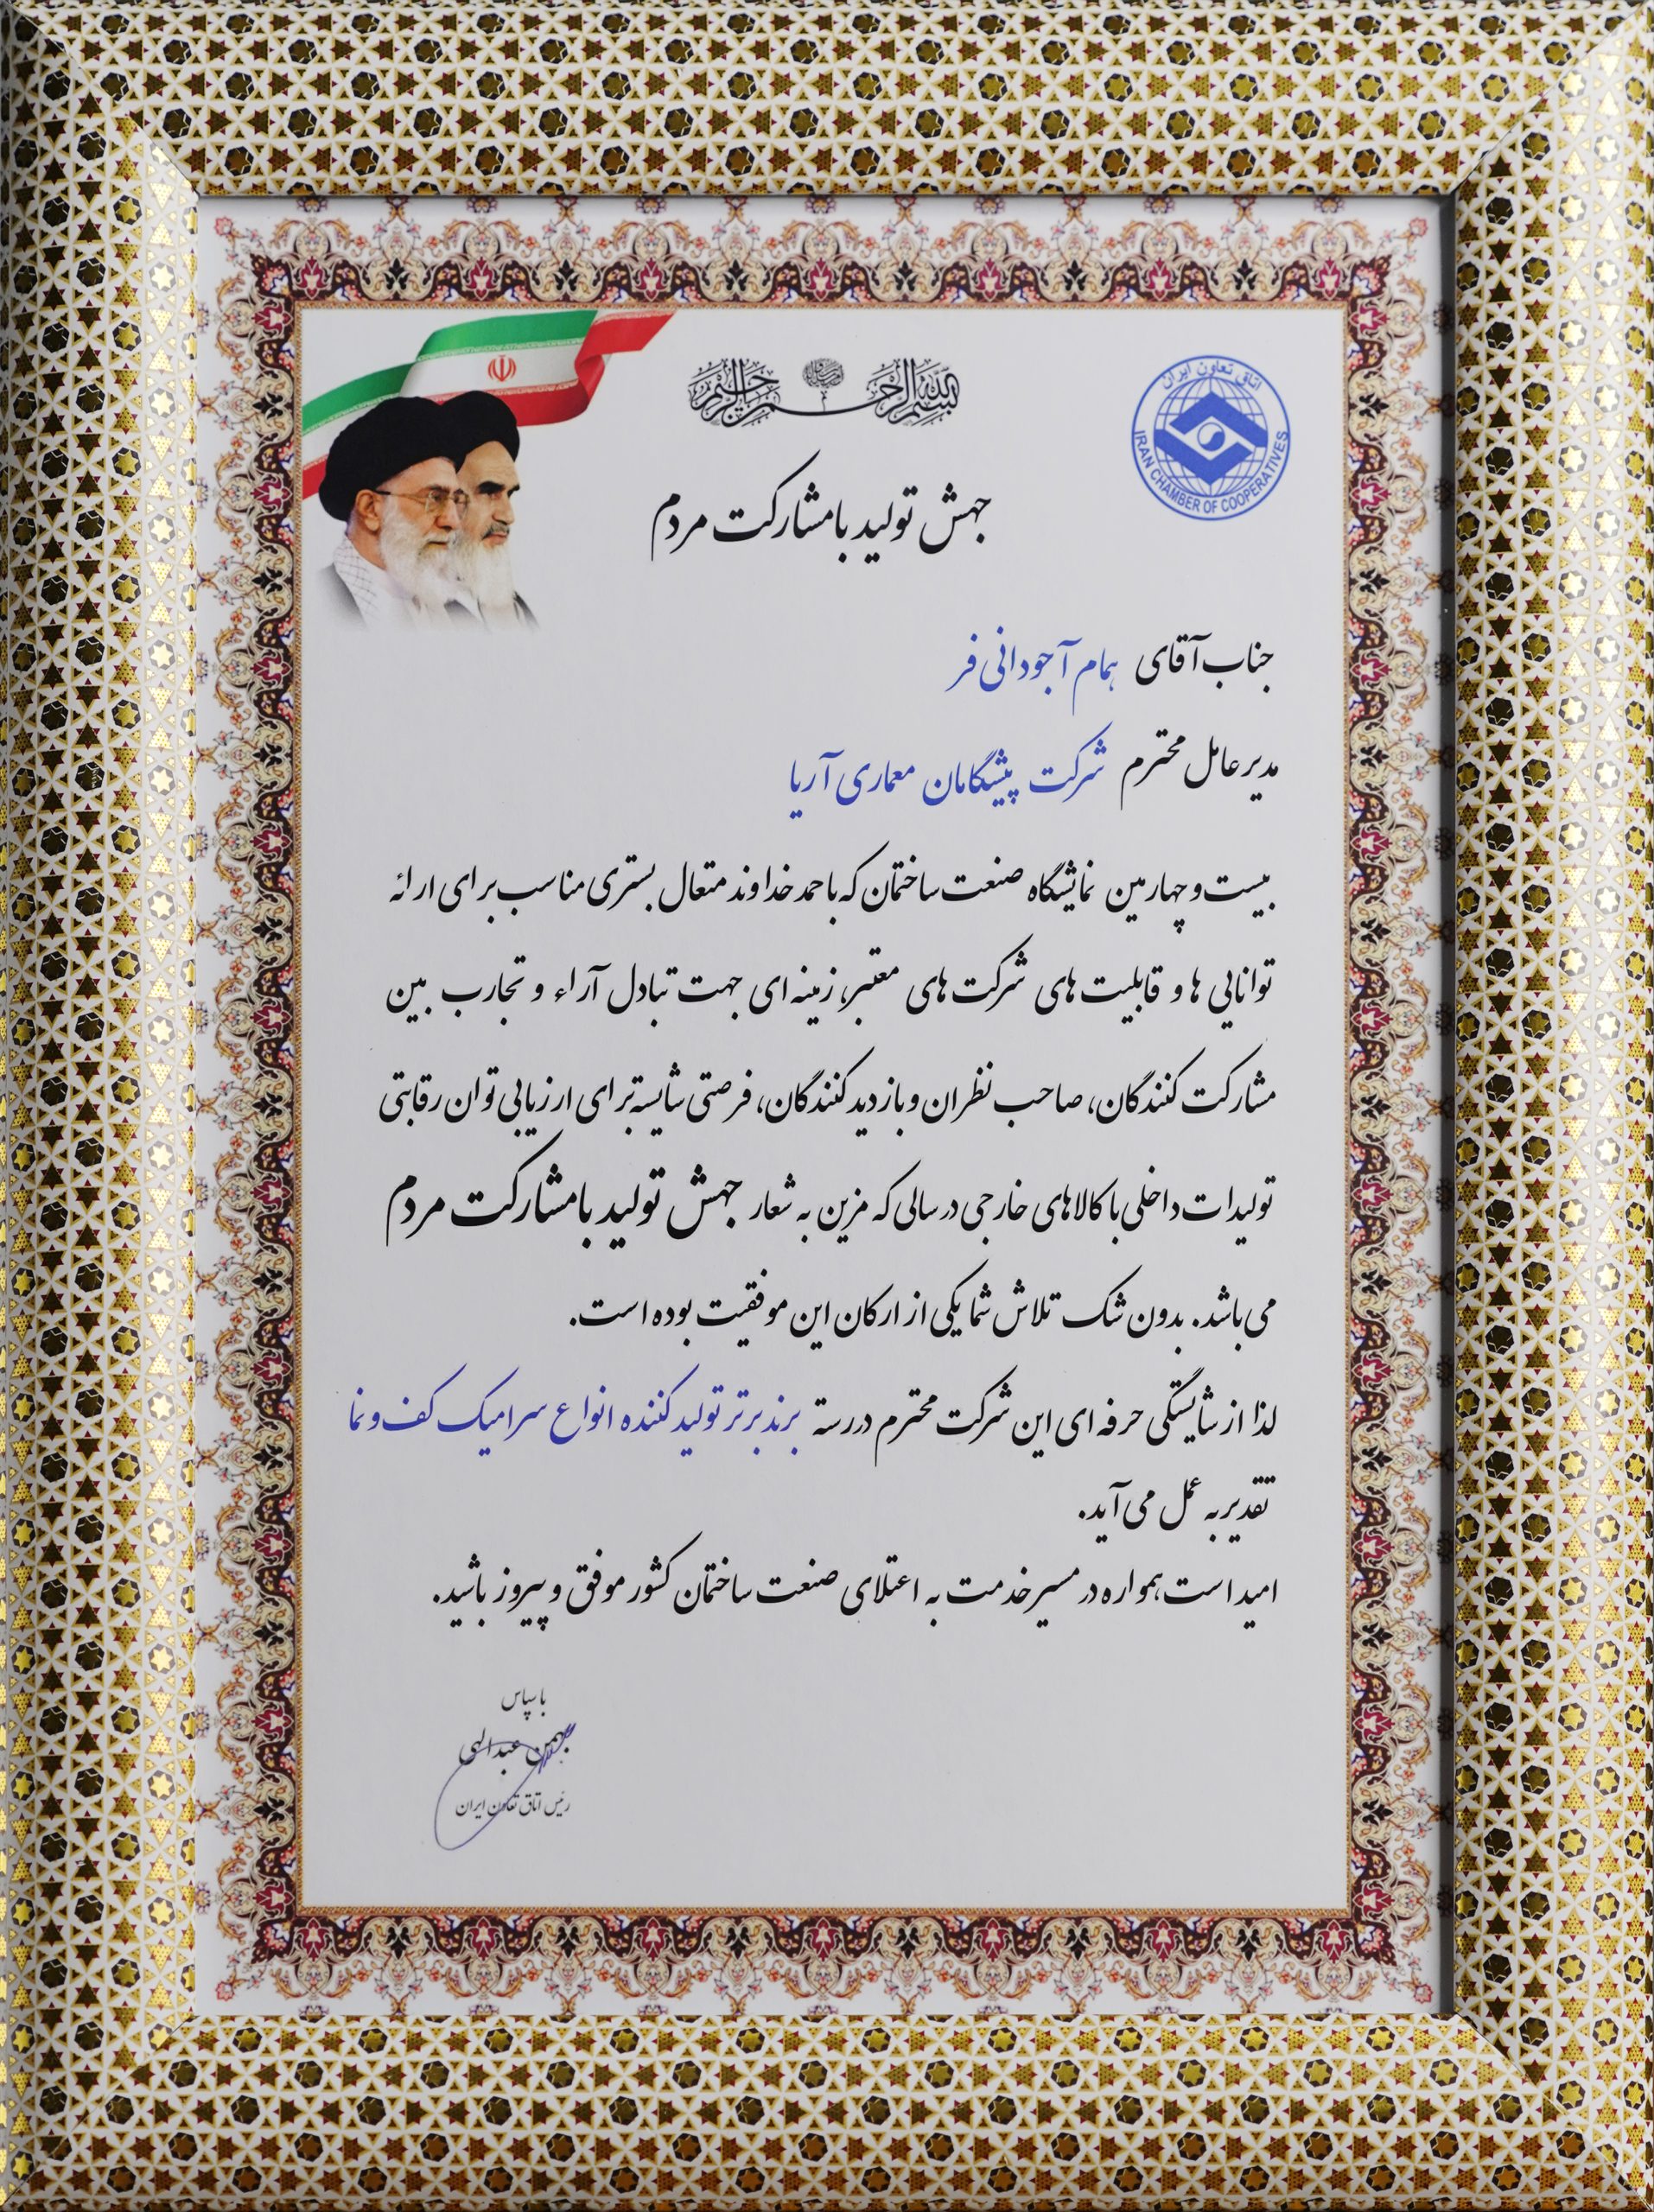 بسم الله الرحمن الرحیم
اتاق تعاون ایران
IRAN CHAMBER OF COOPERATIVES
جهش تولید با مشارکت مردم
جناب آقای همام آجودانی فر
مدیر عامل محترم شرکت پیشگامان معماری آریا
بیست و چهارمین نمایشگاه صنعت ساختمان که با حمد خداوند متعال بستری مناسب برای ارائه
توانایی ها و قابلیت های شرکت های معتبر، زمینه ای جهت تبادل آراء و تجارب بین
مشارکت کنندگان، صاحب نظران و بازدید کنندگان، فرصتی شایسته برای ارزیابی توان رقابتی
تولیدات داخلی با کالاهای خارجی در سالی که مزین به شعار جهش تولید با مشارکت مردم
می باشد. بدون شک تلاش شما یکی از ارکان این موفقیت بوده است.
لذا از شایستگی حرفه ای این شرکت محترم در رسته برند برتر تولید کننده انواع سرامیک کف و نما
تقدیر به عمل می آید.
امید است همواره در مسیر خدمت به اعتلای صنعت ساختمان کشور موفق و پیروز باشید.
با سپاس
بهمن عبدالهی
رئیس اتاق تعاون ایران